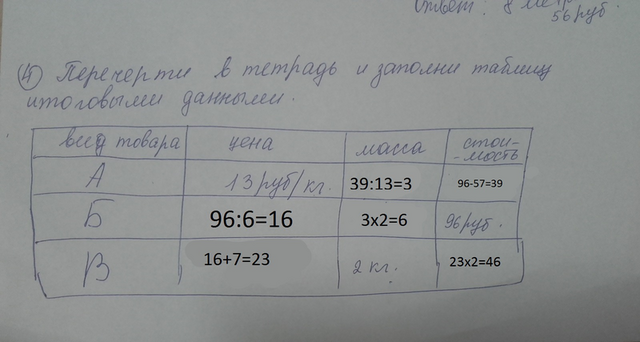 Ответ: 8 метр
56 руб.
4 Перечерти в тетрадь и заполни таблиц
итоговыми данными.
вид товара цена масса стои-
-мость
А 13 руб/кг. 39:13=3 96-57=39
Б 96:6=16 3x2=6 96 руб.
В 16+7=23 2 кг. 23x2=46